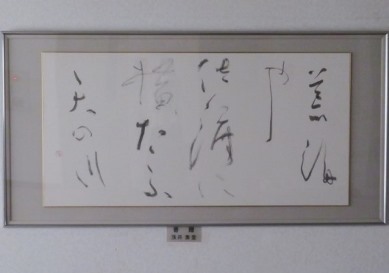 荒海
や
佐渡に
横たふ
天の川